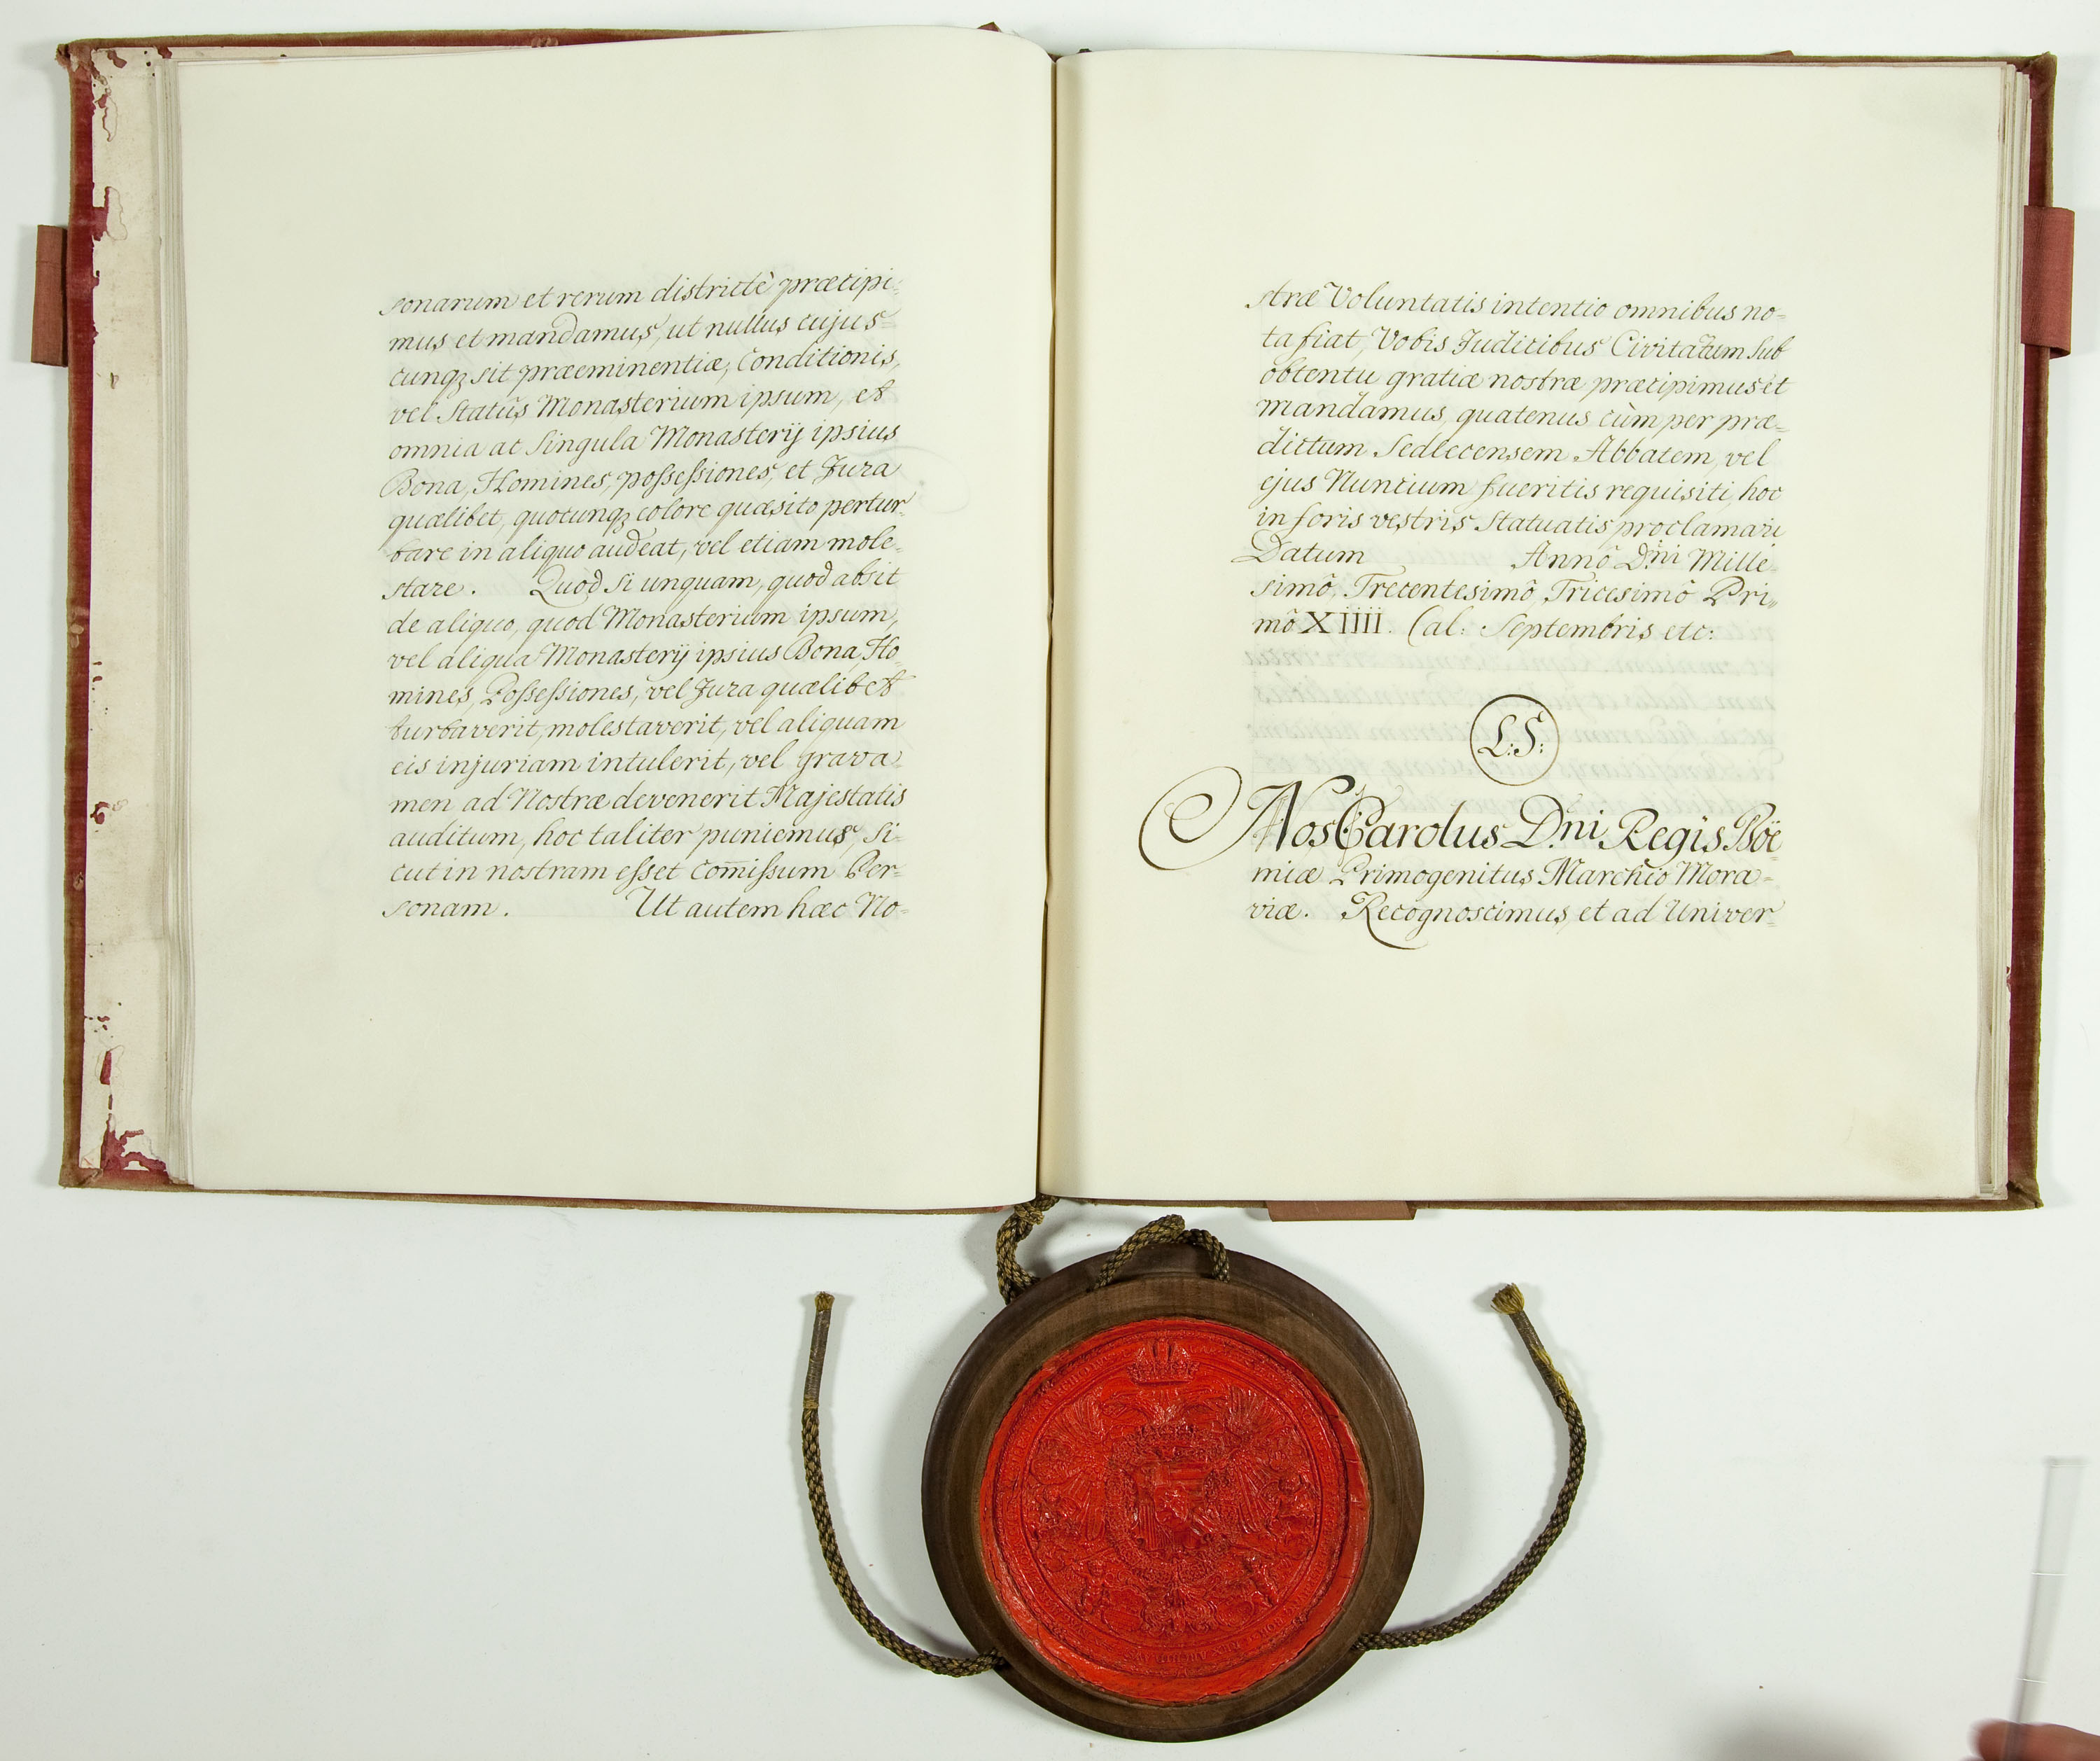 sonarum et rerum districtè præcipi-
mus et mandamus, ut nullus cujus-
cunqz sit præeminentiæ, Conditionis,
vel Statûs Monasterium ipsum, et
omnia ac Singula Monasterij ipsius
Bona, Homines, possessiones, et Jura
quælibet, quocunqz colore quæsito pertur-
bare in aliquo audeat, vel etiam mole-
stare. Quod si unquam, quod absit
de aliquo, quod Monasterium ipsum,
vel aliqua Monasterij ipsius Bona, Ho-
mines, Possessiones, vel Jura quælibet
turbaverit, molestaverit, vel aliquam
eis injuriam intulerit, vel grava-
men ad Nostræ devenerit Majestatis
auditum, hoc taliter puniemus, si-
cut in nostram esset com̄issum Per-
sonam. Ut autem hæc No-
stræ Voluntatis intentio omnibus no-
ta fiat, Vobis Judicibus Civitatum sub
obtentu gratiæ nostræ præcipimus et
mandamus, quatenus cùm per præ-
dictum Sedlecensem Abbatem, vel
ejus Nuncium fueritis requisiti, hoc
in foris vestris Statuatis proclamari
Datum Annô Dni Mille-
simô, Trecentesimô, Tricesimô Pri-
mô XIIII. Cal: Septembris etc:
L:S:
Nos Carolus Dni Regis Boë-
miæ Primogenitus Marchio Mora-
viæ. Recognoscimus, et ad Univer-